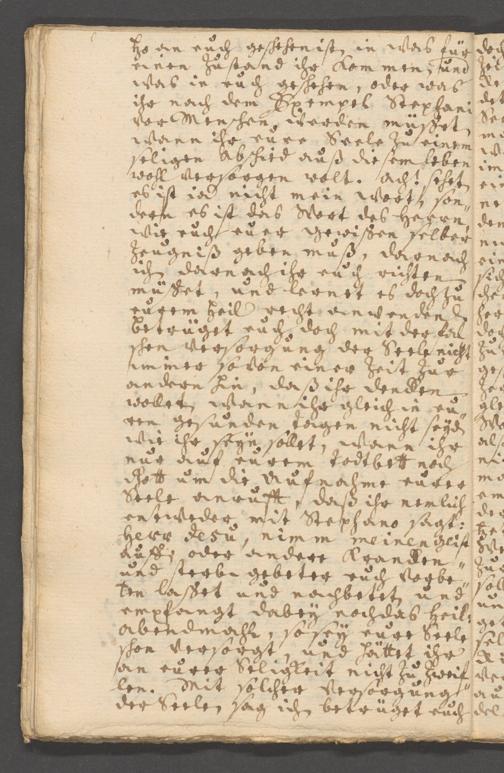 ho an euch geschehen ist, in was für
einen zustand ihr kommen, und
was in euch geschehen, oder was
ihr nach dem Exempel Stephani
vor Menschen werden müsset,
wann ihr eure Seele zu einem
seligen Abschied auß diesem leben
wohl versorgen wolt. Ach! sehet
es ist ja nicht mein wort, son-
dern es ist das Wort des Herrn,
wie euch euer gewissen selber
Zeugniß geben muß, darnach
ich, darnach ihr euch richten
müsset, und lernet es doch zu
eurem Heil recht anwenden,
betrüget euch doch mit der fal
schen versorgung der Seele nicht
immer so von einer Zeit zur
andern hin, daß ihr dencken
wollet, wann ihr gleich in eu-
ren gesunden tagen nicht seyd
wie ihr seyn sollet, wann ihr
nur auf eurem todtbett noch
Gott um die Aufnahme eurer
Seele anrufft, daß ihr nemlich
entweder mit Stephano sagt:
Herr Jesu, nimm meinen Geist
auff, oder andere Krancken-
und sterbe gebeter euch vorbe-
ten lasset und nachbetet, und
empfangt dabey noch das heil:
abendmahl, so sey eure Seele
schon versorgt, und hättet ihr
an eurer Seligkeit nicht zu zweif
len. Mit solcher versorgung
der Seelen, sag ich, betrüget euch